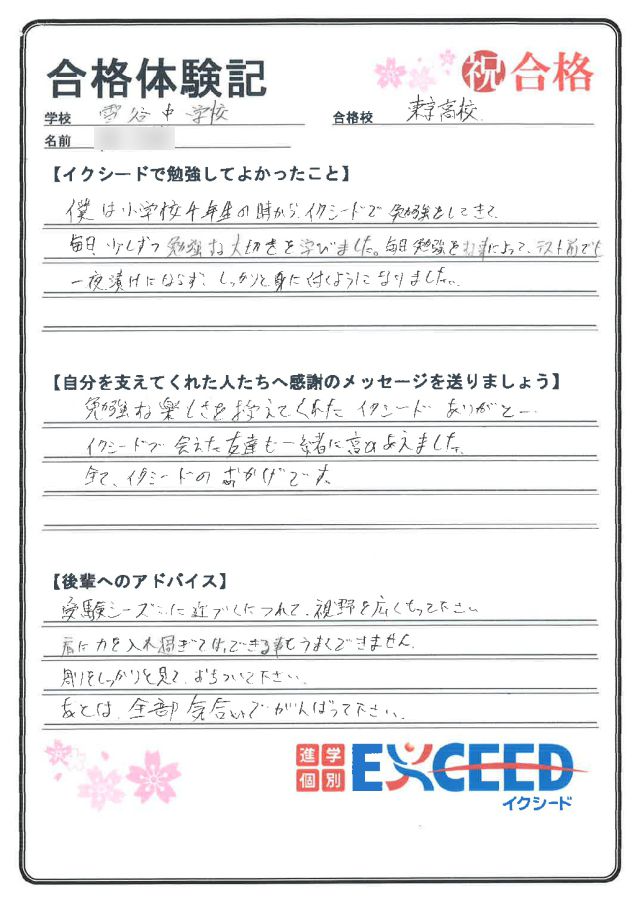 合格体験記
祝 合格
学校 雪谷中学校
合格校 東京高校
名前
【イクシードで勉強してよかったこと】
僕は小学校4年生の時から、イクシードで勉強をしてきて、
毎日少しずつ勉強な大切さを学びました。毎日勉強をする事によって、テスト前でも
一夜漬けにならず、しっかりと身に付くようになりました。
【自分を支えてくれた人たちへ感謝のメッセージを送りましょう】
勉強な楽しさを教えてくれたイクシードありがとー
イクシードで会えた友達も一緒に高めあえました。
全て、イクシードのおかげです。
【後輩へのアドバイス】
受験シーズンに近づくにつれて、視野を広くもって下さい
肩に力を入れ過ぎてはできる事もうまくできません。
周りをしっかりと見て、おちついて下さい。
あとは、全部気合いでがんばって下さい。
進学
個別
EXCEED
イクシード